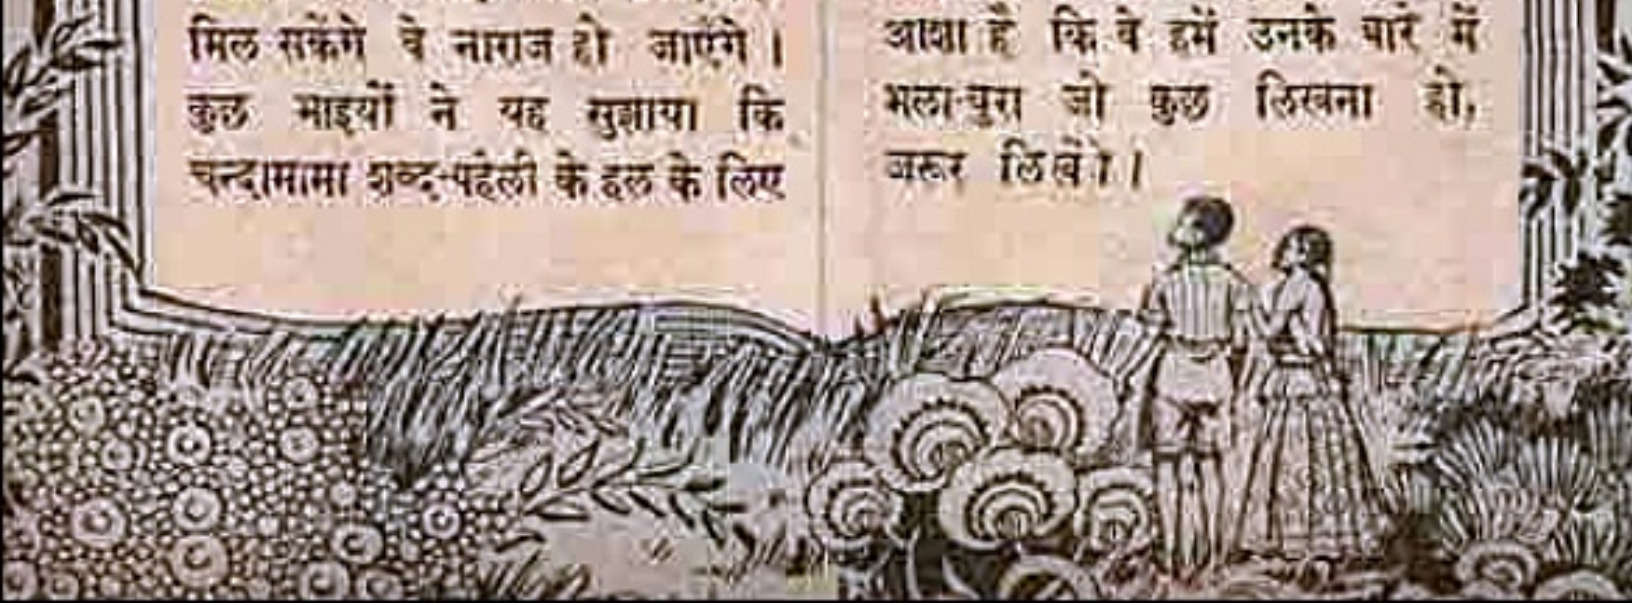 मिल सकेंगे वे नाराज हो जाएँगे।
कुछ भाइयों ने यह सुझाया कि
चन्दामामा शब्द-पहेली के हल के लिए
आशा है कि वे हमें उनके बारे में
भला-बुरा जो कुछ लिखना हो,
जरूर लिखेंगे।